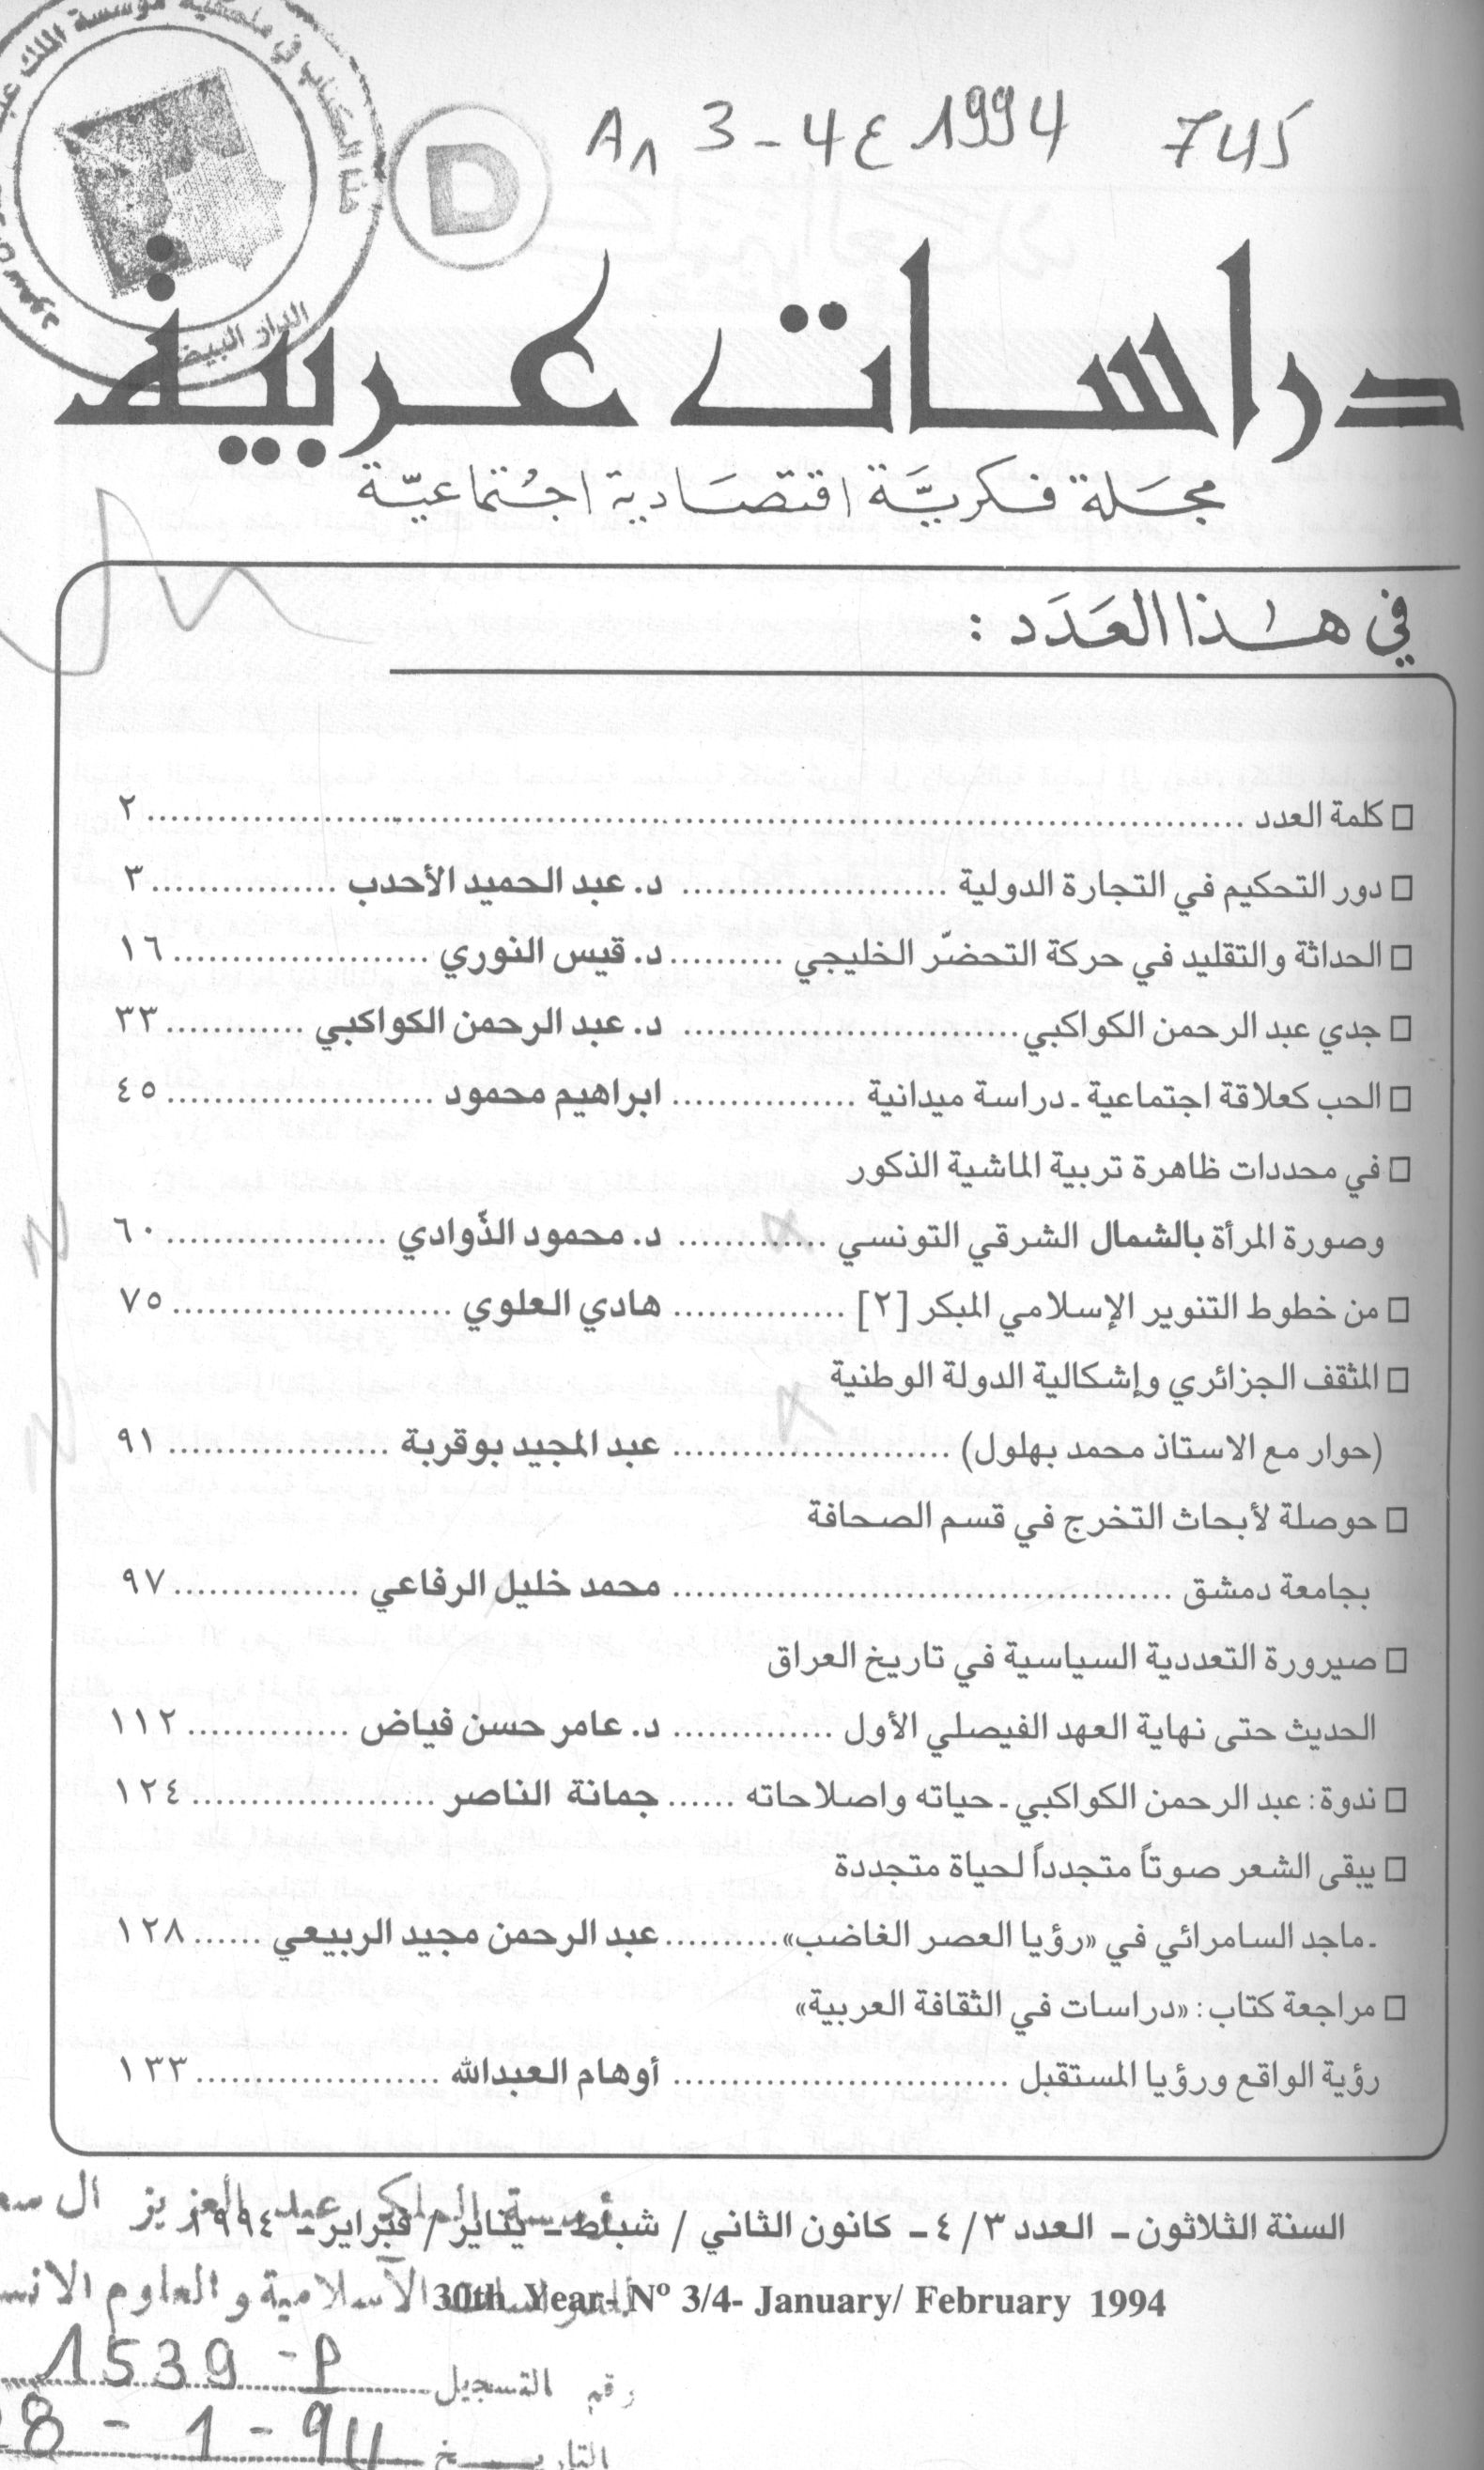 مؤسسة الملك
الدار البيضاء
D
A1 3-4 ع 1994 745
دراسات عربية
مجلة فكريّة اقتصادية اجتماعيّة
في هذا العدد :
□ كلمة العدد ........ ٢
□ دور التحكيم في التجارة الدولية ........ د. عبد الحميد الأحدب ........ ٣
□ الحداثة والتقليد في حركة التحضّر الخليجي ........ د. قيس النوري ........ ١٦
□ جدي عبد الرحمن الكواكبي ........ د. عبد الرحمن الكواكبي ........ ٣٣
□ الحب كعلاقة اجتماعية ـ دراسة ميدانية ........ ابراهيم محمود ........ ٤٥
□ في محددات ظاهرة تربية الماشية الذكور
وصورة المرأة بالشمال الشرقي التونسي ........ د. محمود الذّوادي ........ ٦٠
□ من خطوط التنوير الإسلامي المبكر [٢] ........ هادي العلوي ........ ٧٥
□ المثقف الجزائري وإشكالية الدولة الوطنية
(حوار مع الاستاذ محمد بهلول) ........ عبد المجيد بوقربة ........ ٩١
□ حوصلة لأبحاث التخرج في قسم الصحافة
بجامعة دمشق ........ محمد خليل الرفاعي ........ ٩٧
□ صيرورة التعددية السياسية في تاريخ العراق
الحديث حتى نهاية العهد الفيصلي الأول ........ د. عامر حسن فياض ........ ١١٢
□ ندوة: عبد الرحمن الكواكبي ـ حياته واصلاحاته ...... جمانة الناصر ........ ١٢٤
□ يبقى الشعر صوتاً متجدداً لحياة متجددة
ـ ماجد السامرائي في «رؤيا العصر الغاضب» ........ عبد الرحمن مجيد الربيعي ...... ١٢٨
□ مراجعة كتاب: «دراسات في الثقافة العربية»
رؤية الواقع ورؤيا المستقبل ........ أوهام العبدالله ........ ١٣٣
مؤسسة الملك عبد العزيز ال
السنة الثلاثون - العدد ٣/ ٤ - كانون الثاني / شباط - يناير / فبراير - ١٩٩٤
الاسلامية و العلوم
30th Year- Nº 3/4- January/ February 1994
رقم التسجيل 1539 - P
التاريخ 8 - 1 - 94